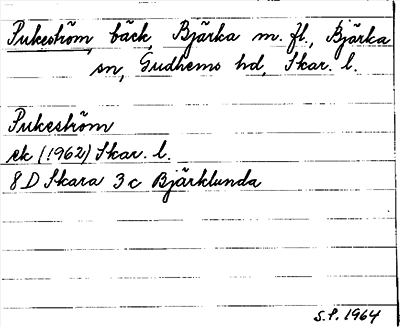 Pukeström, bäck, Bjärka m. fl., Bjärka
sn, Gudhems hd, Skar. l.
Pukeström
ek (1962) Skar. l.
8 D Skara 3 c Bjärklunda
S.P. 1964